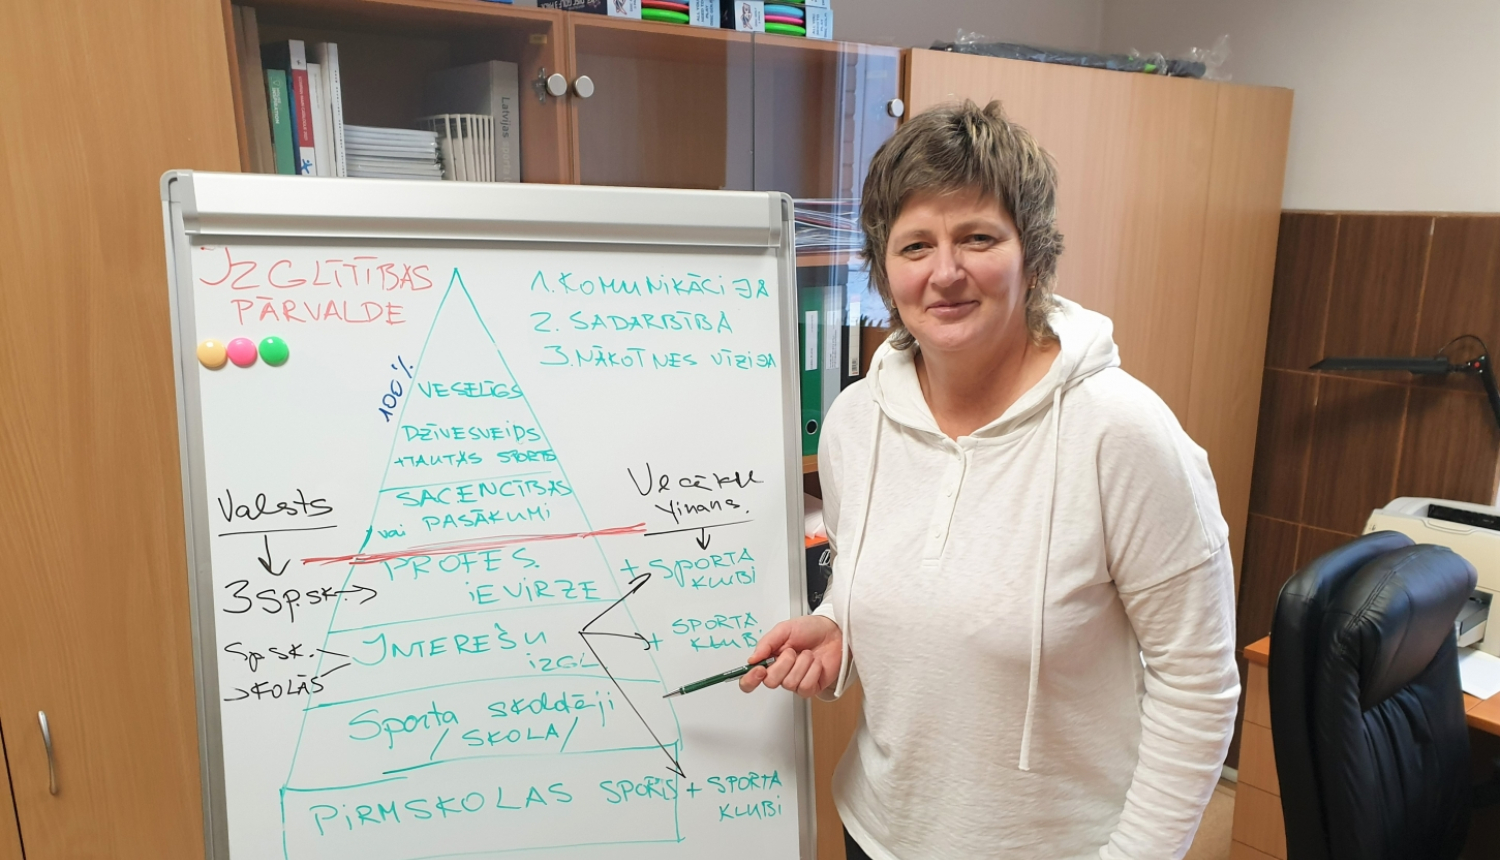 Latvijas
IZGLĪTĪBAS
PĀRVALDE
1. KOMUNIKĀCIJA
2. SADARBĪBA
3. NĀKOTNES VĪZIJA
100%
VESELĪGS
DZĪVESVEIDS
+TAUTAS SPORTS
SACENCĪBAS
vai PASĀKUMI
Valsts
Vecāku
finans.
PROFES.
IEVIRZE
3 sp.sk.
+ SPORTA
KLUBI
INTEREŠU
IZGL
Sp.sk.
SKOLĀS
+ SPORTA
KLUBI
Sporta skolotāji
/ SKOLA /
PIRMSKOLAS SPORTS + SPORTA
KLUBI